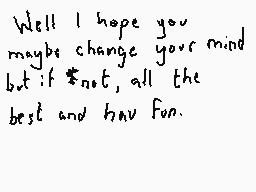 Well I hope you
maybe change your mind
but if not, all the
best and hav fun.